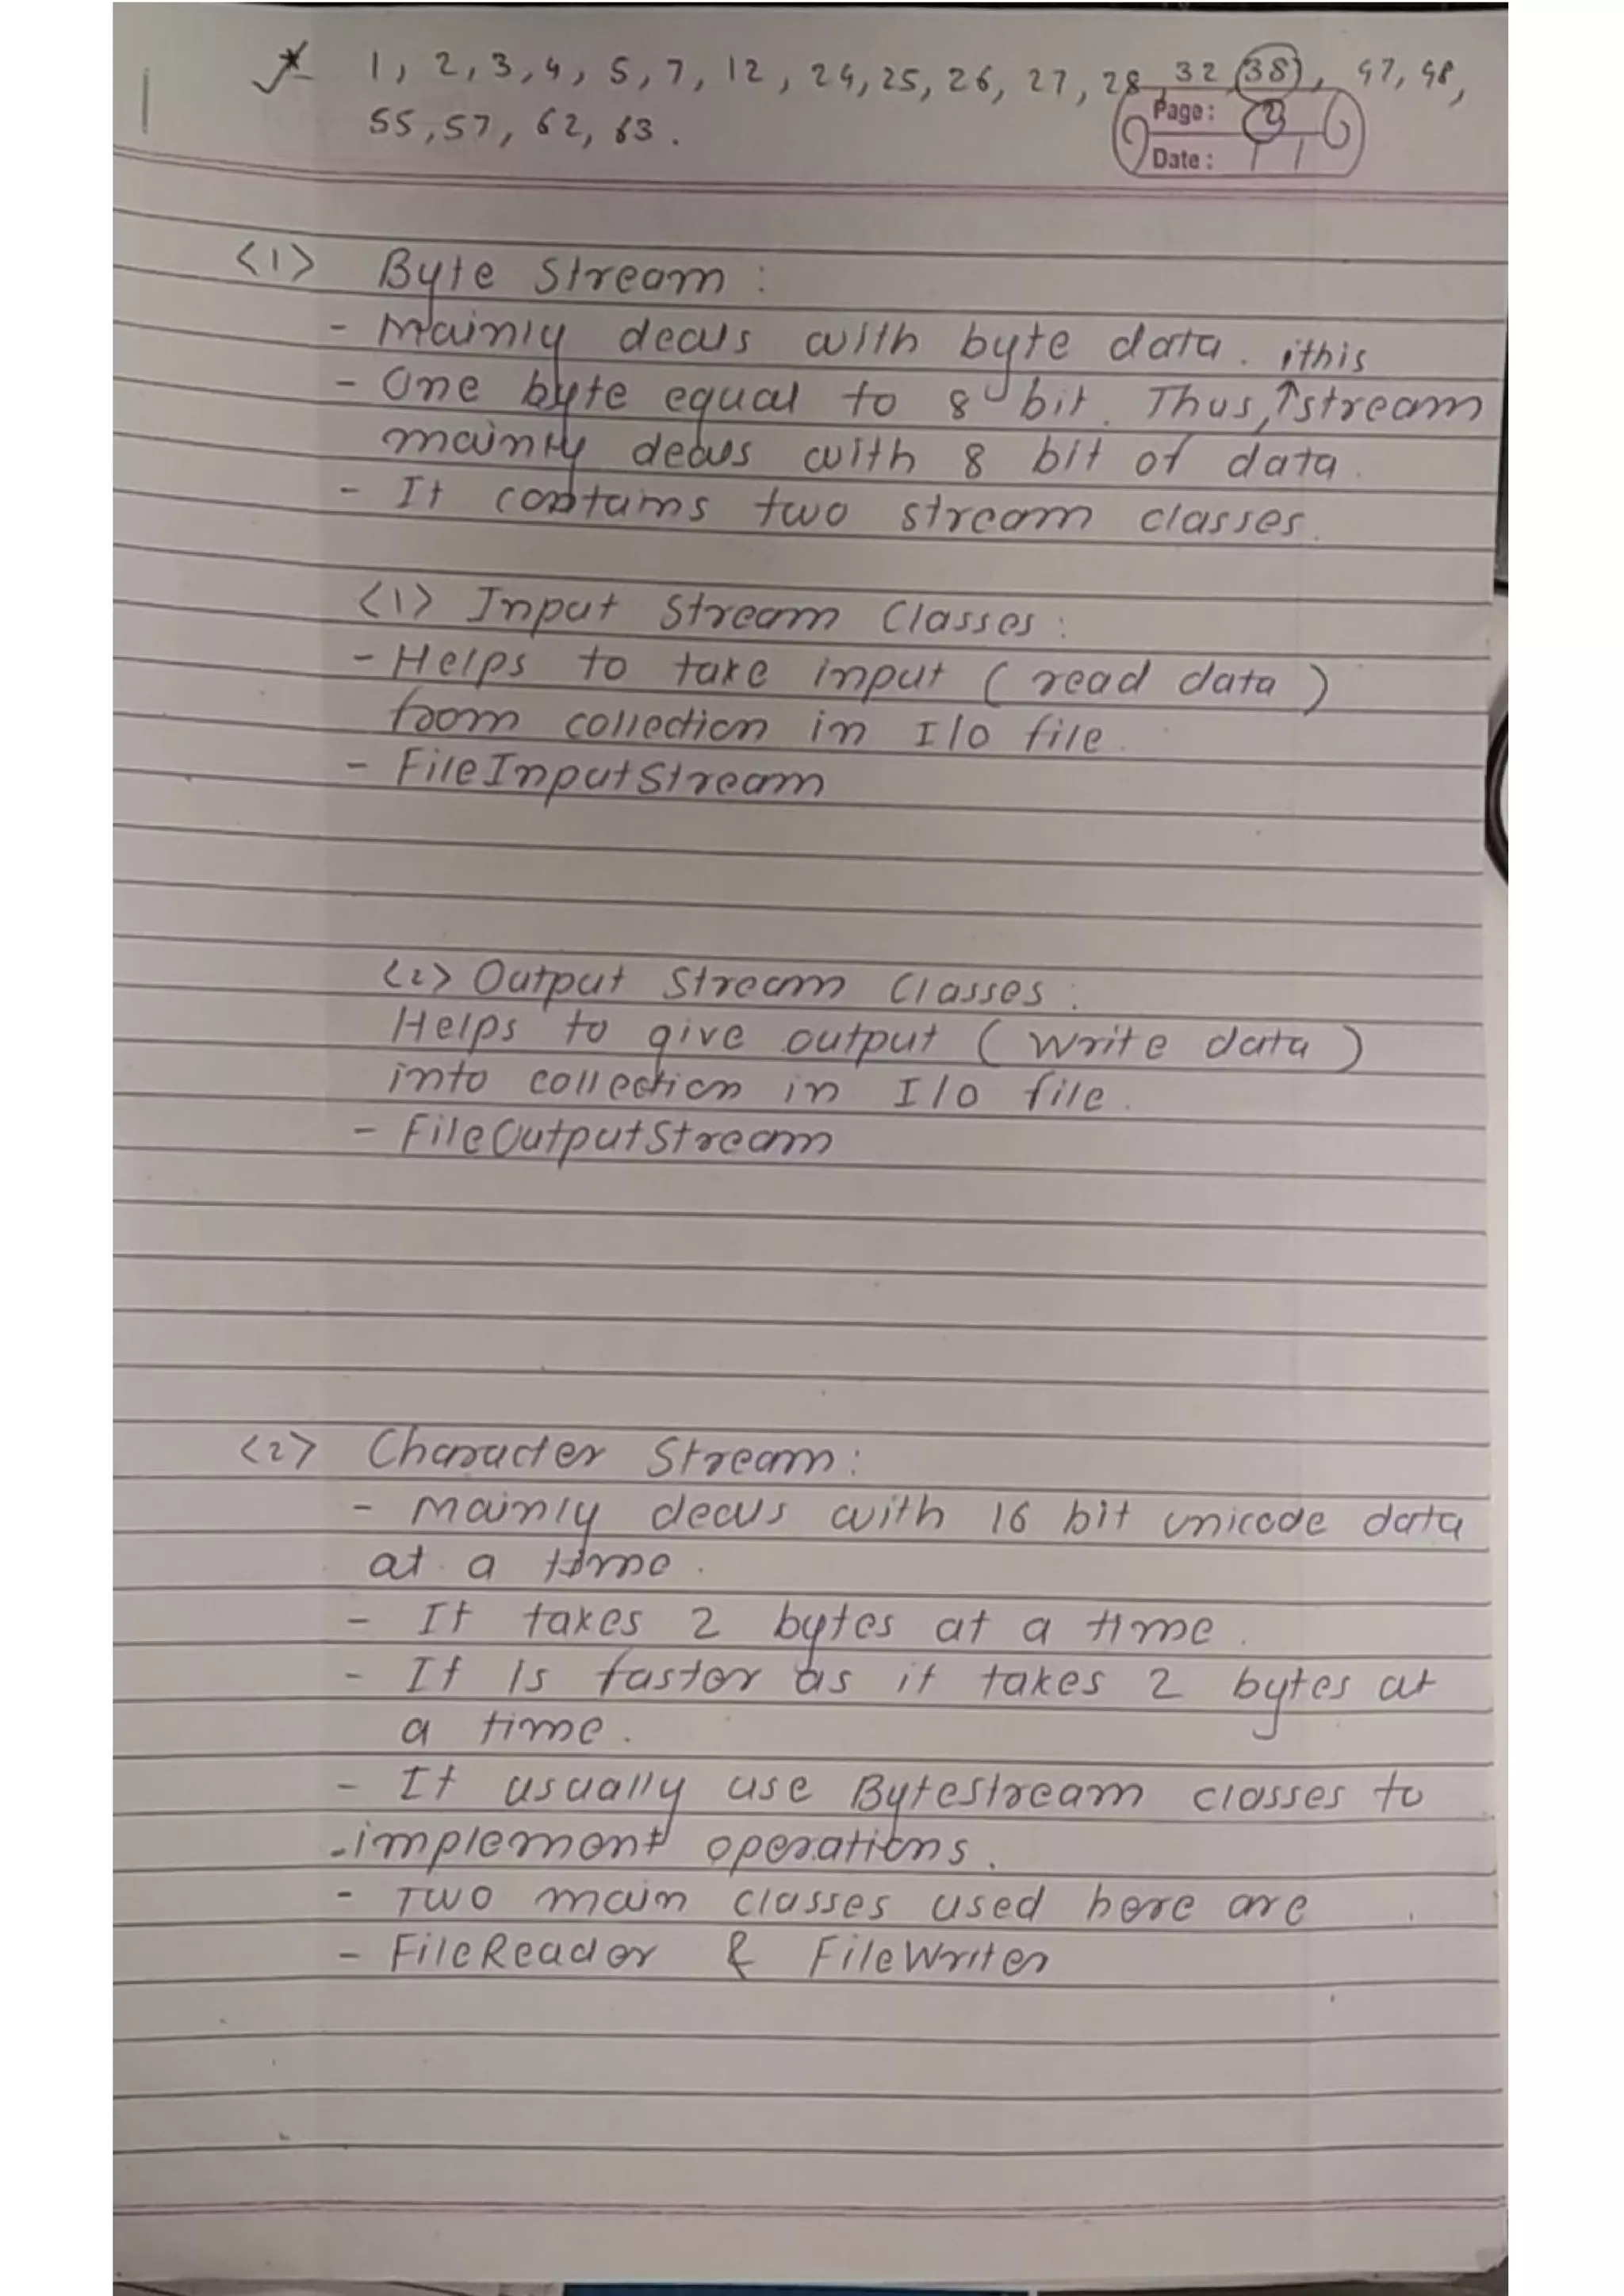 * 1, 2, 3, 4, 5, 7, 12, 24, 25, 26, 27, 28, 32, 38, 47, 48,
55, 57, 62, 63.
Page: 2
Date: / /
<1> Byte Stream :
- Mainly deals with byte data. this
- One byte equal to 8 bit. Thus, ↑ stream
mainly deals with 8 bit of data.
- It contains two stream classes.
<1> Input Stream Classes :
- Helps to take input ( read data )
from collection in I/O file.
- FileInputStream
<2> Output Stream Classes :
Helps to give output ( write data )
into collection in I/O file.
- FileOutputStream
<2> Character Stream :
- Mainly deals with 16 bit unicode data
at a time.
- It takes 2 bytes at a time.
- It is faster as it takes 2 bytes at
a time.
- It usually use Bytestream classes to
- implement operations.
- Two main classes used here are
- FileReader & FileWriter